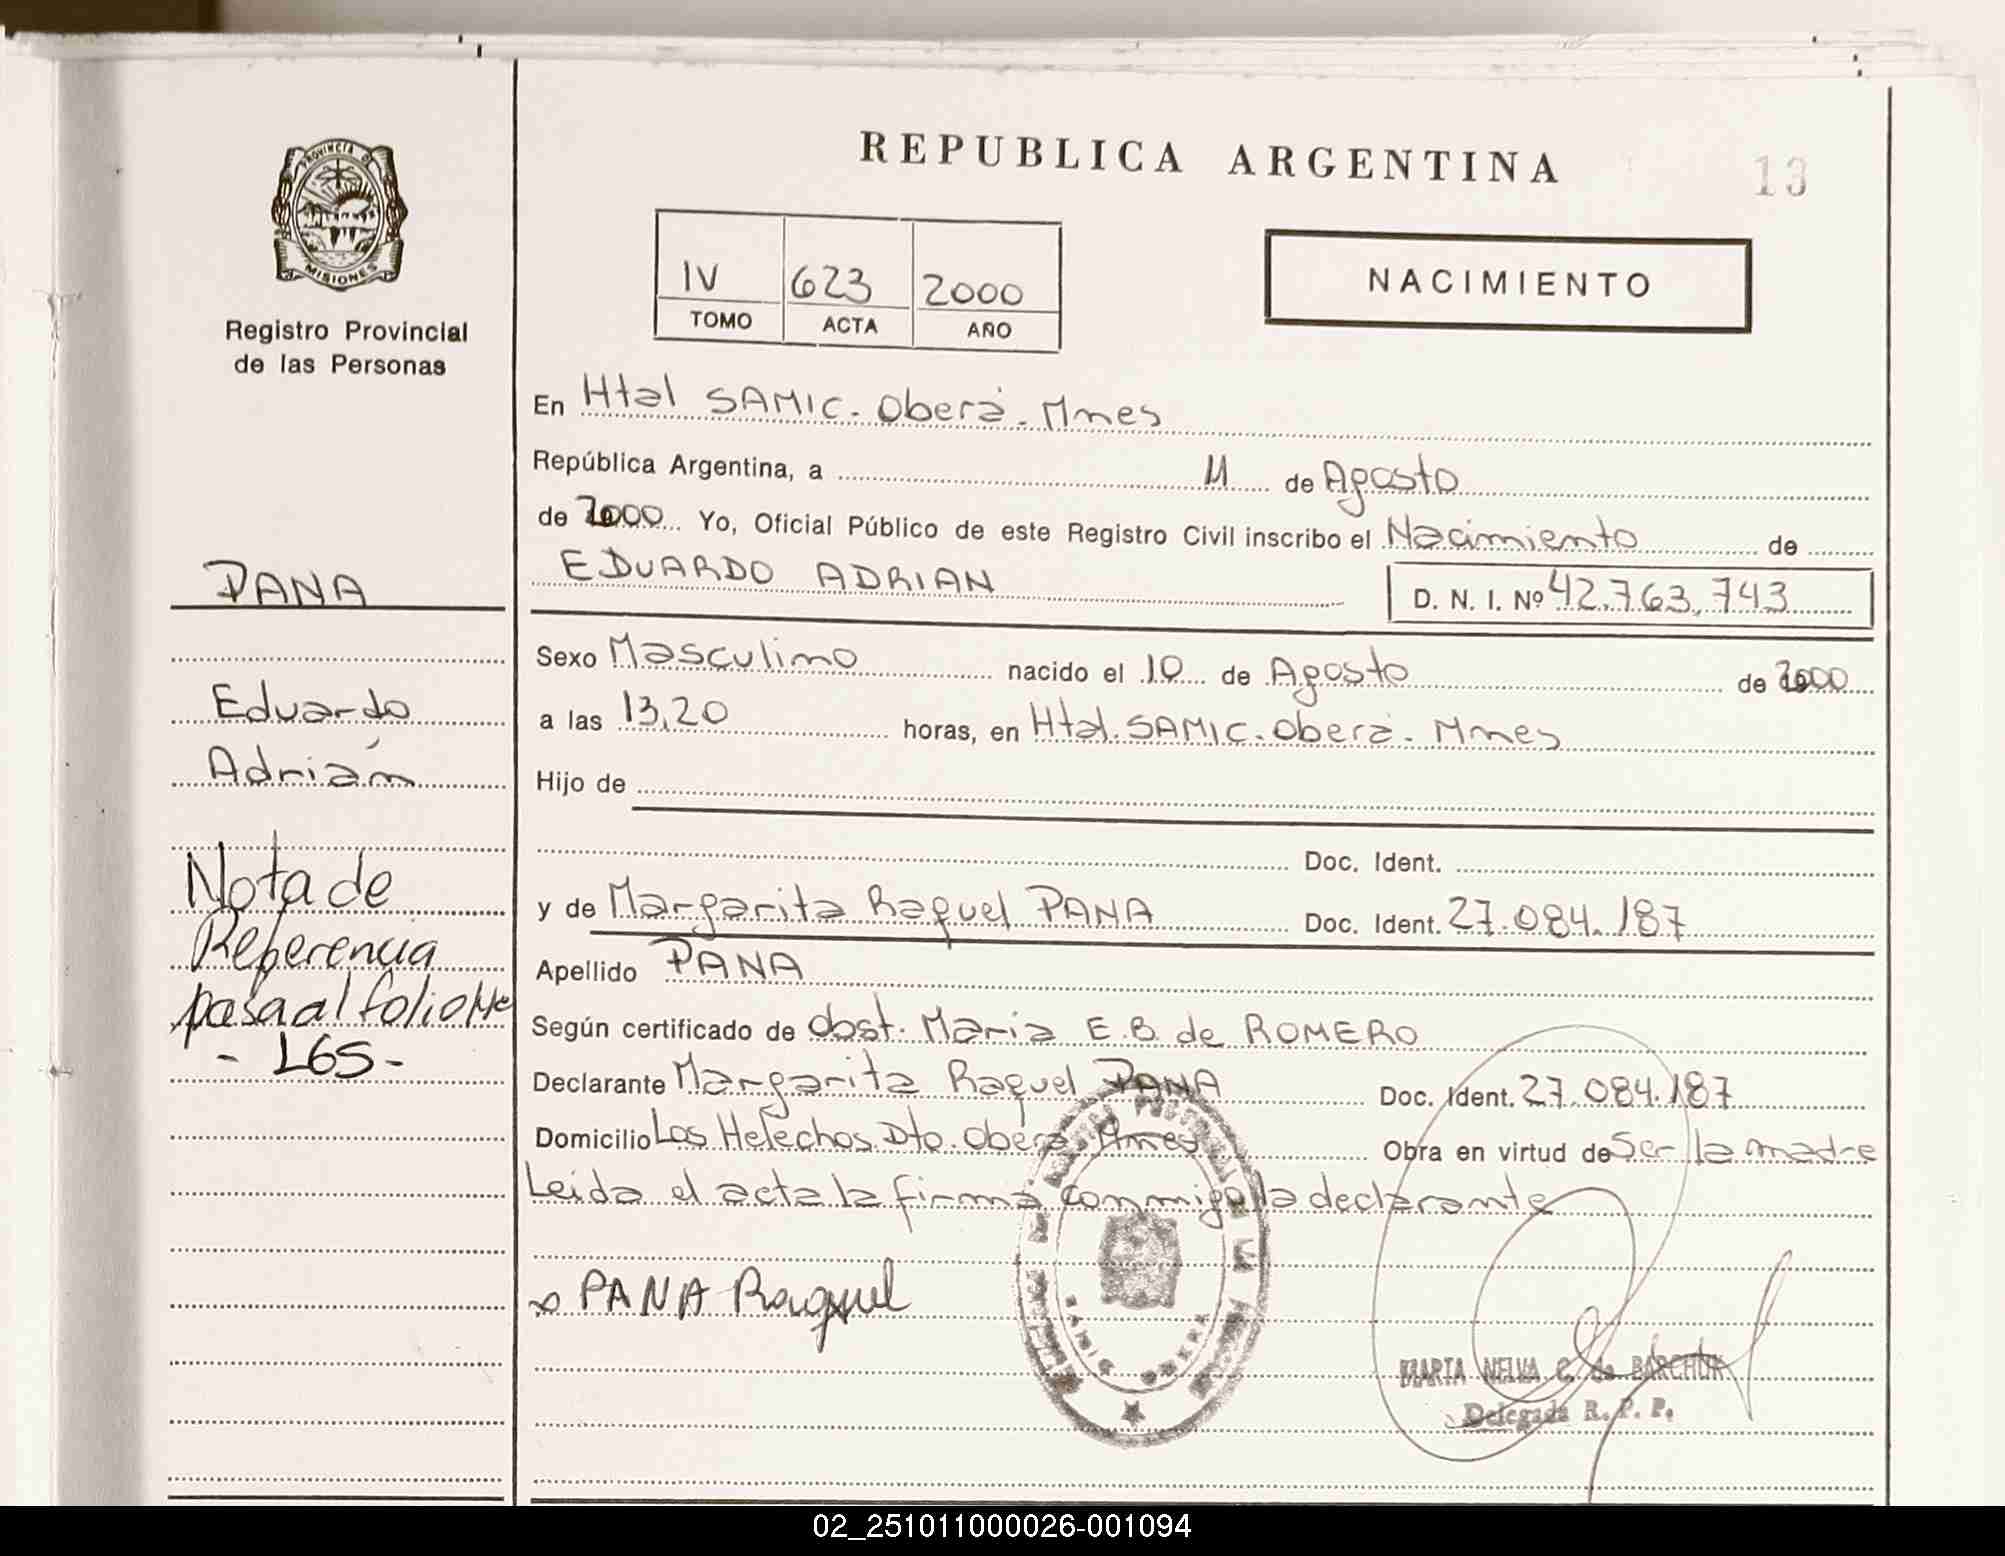 REPUBLICA ARGENTINA
13
PROVINCIA DE
MISIONES
Registro Provincial
de las Personas
IV 623 2000
TOMO ACTA AÑO
NACIMIENTO
En Htal SAMIC. Oberá. Mnes
República Argentina, a 11 de Agosto
de 2000 Yo, Oficial Público de este Registro Civil inscribo el Nacimiento de
EDUARDO ADRIAN D. N. I. Nº 42.763.743
PANA
Sexo Masculino nacido el 10 de Agosto de 2000
Eduardo
a las 13,20 horas, en Htal. SAMIC. Oberá. Mnes
Adrián
Hijo de
Doc. Ident.
Nota de
Referencia
pasa al folio Nº
- 165 -
y de Margarita Raquel PANA Doc. Ident. 27.084.187
Apellido PANA
Según certificado de obst. Maria E.B. de ROMERO
Declarante Margarita Raquel PANA Doc. Ident. 27.084.187
Domicilio Los Helechos Dto. Oberá Mnes Obra en virtud de Ser la madre
Leida el acta la firma conmigo la declarante
PANA Raquel
SAMIC OBERA
MARTA NELVA C. de BARCHUK
Delegada R. P. P.
02_251011000026-001094